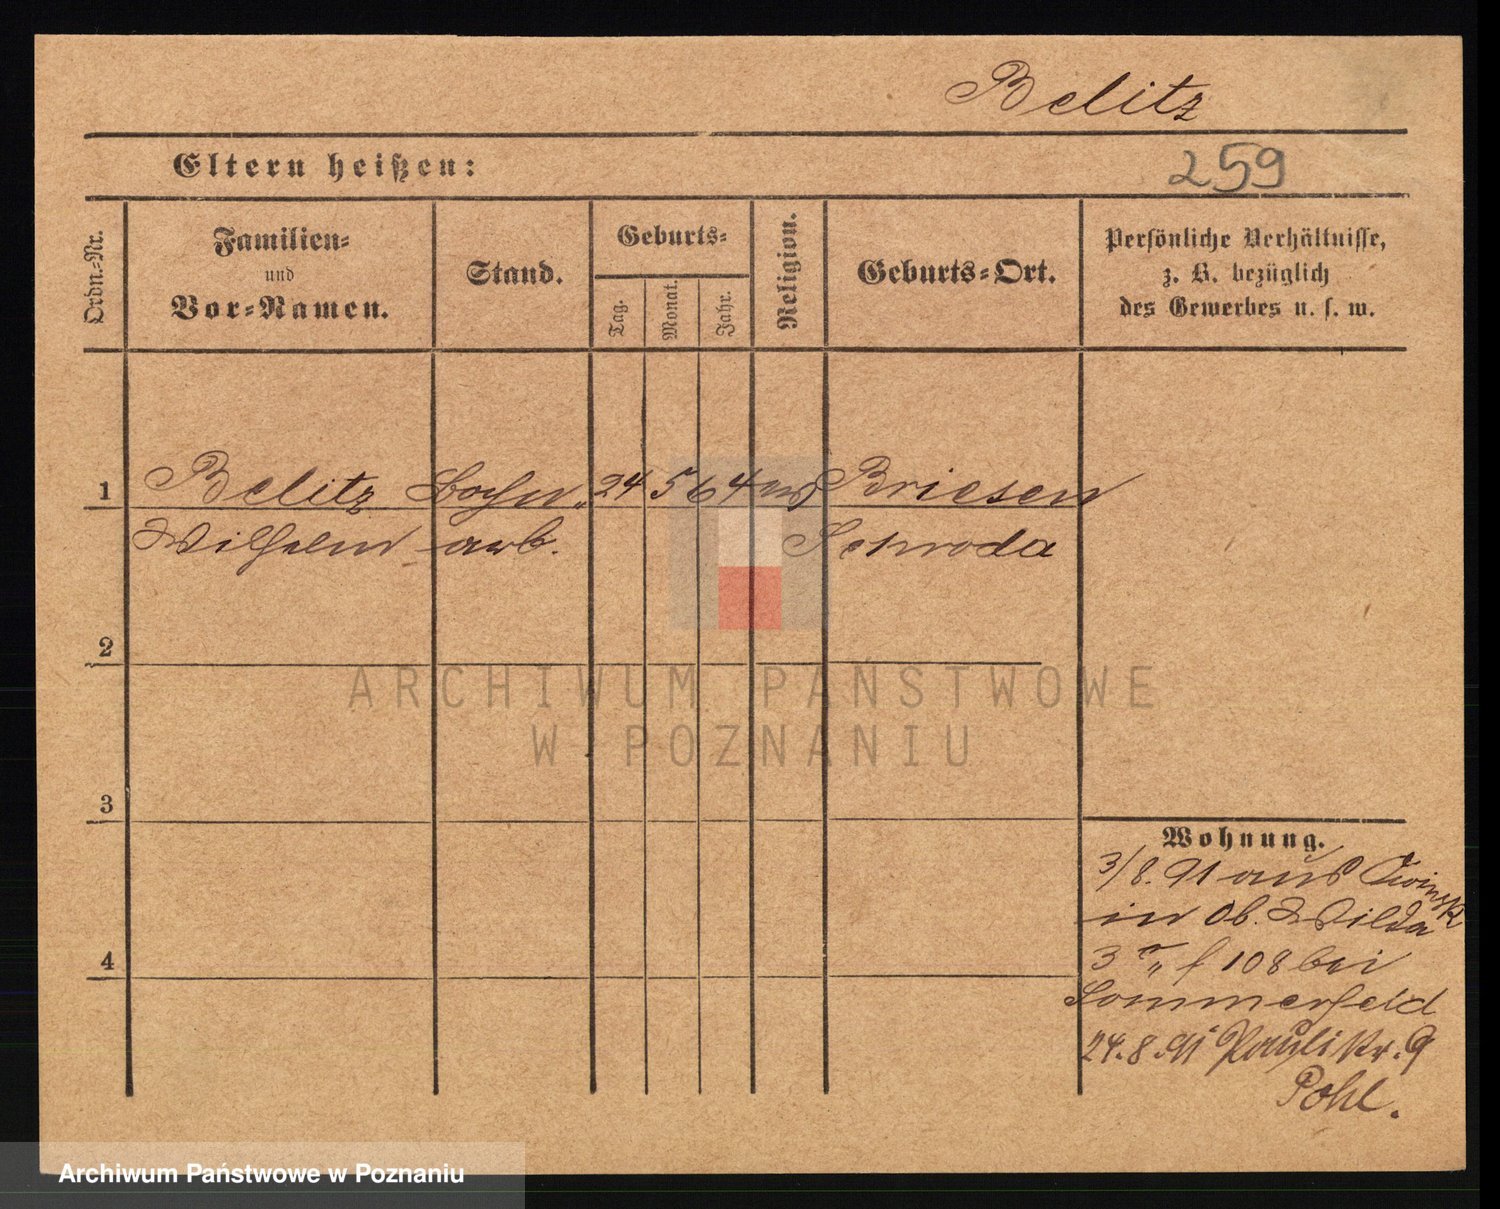 Belitz
259
Eltern heißen:
Ordn.-Nr.
Familien-
und
Vor-Namen.
Stand.
Geburts-
Tag.
Monat.
Jahr.
Religion.
Geburts-Ort.
Persönliche Verhältnisse,
z. B. bezüglich
des Gewerbes u. s. w.
1 Belitz 24 5 64 Briesen
Wilhelm arb. Schroda
2
3
4
ARCHIWUM PAŃSTWOWE
W POZNANIU
Wohnung.
3/8.91 aus
in Ob. Wilda
108 bei
Sommerfeld
24.8.91 Paulistr. 9
Pohl.
Archiwum Państwowe w Poznaniu